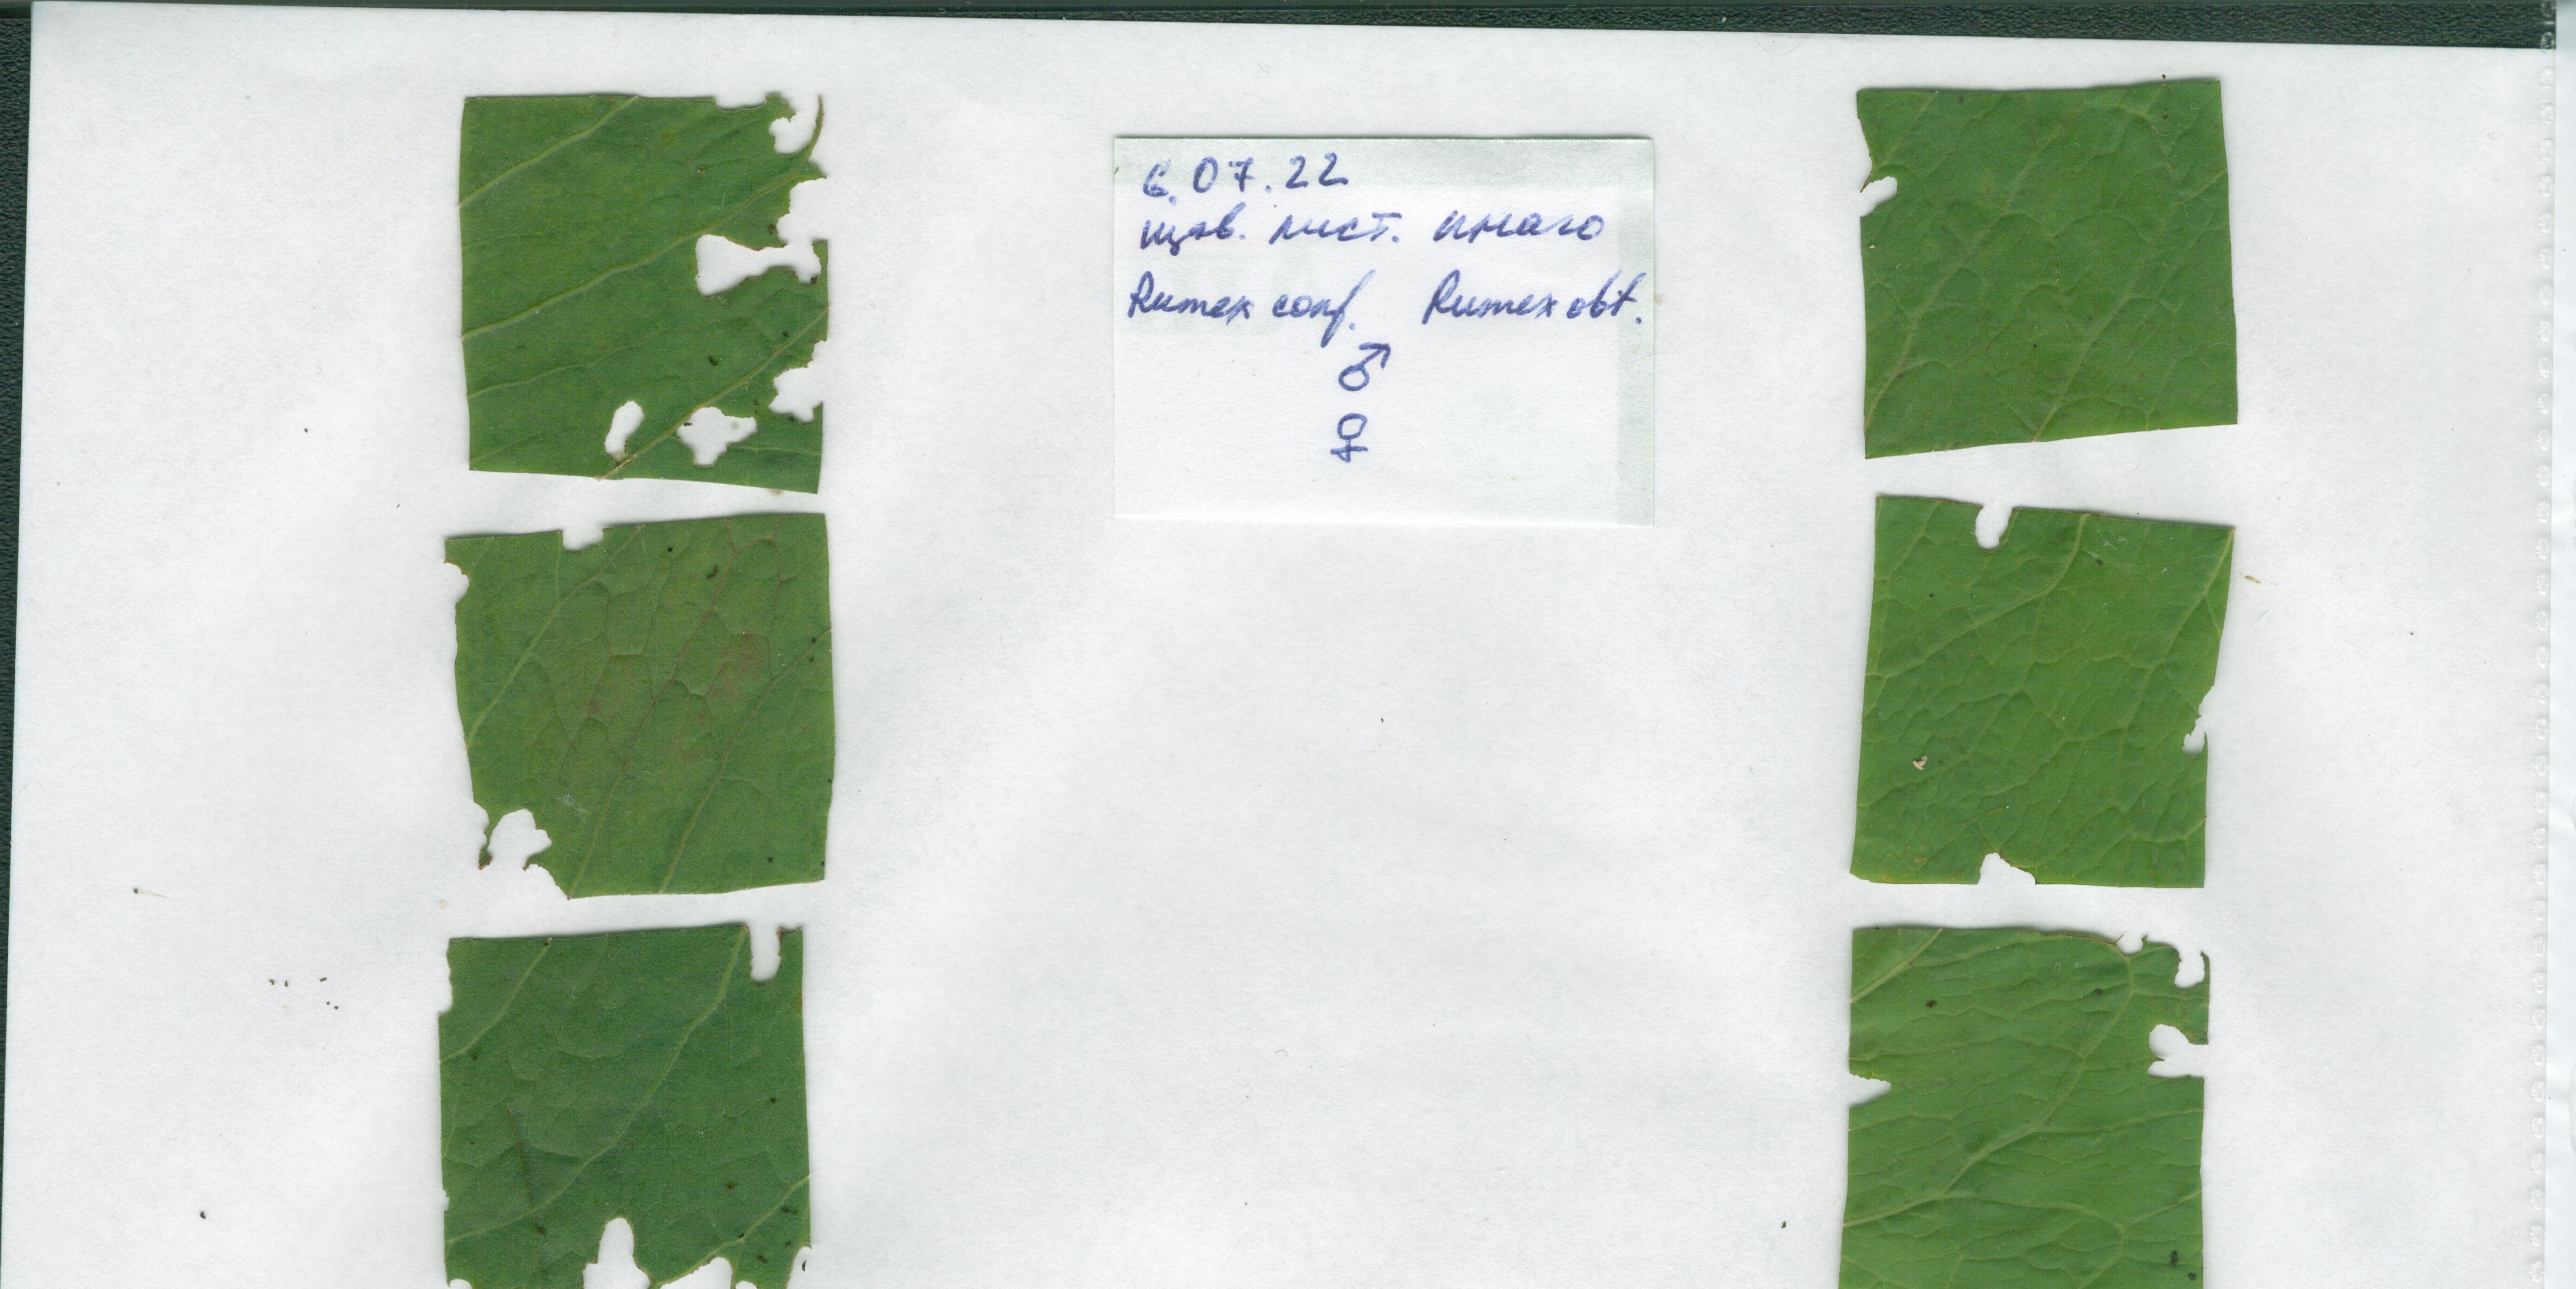 6.07.22
щав. лист. имаго
Rumex conf. Rumex obt.
♂
♀